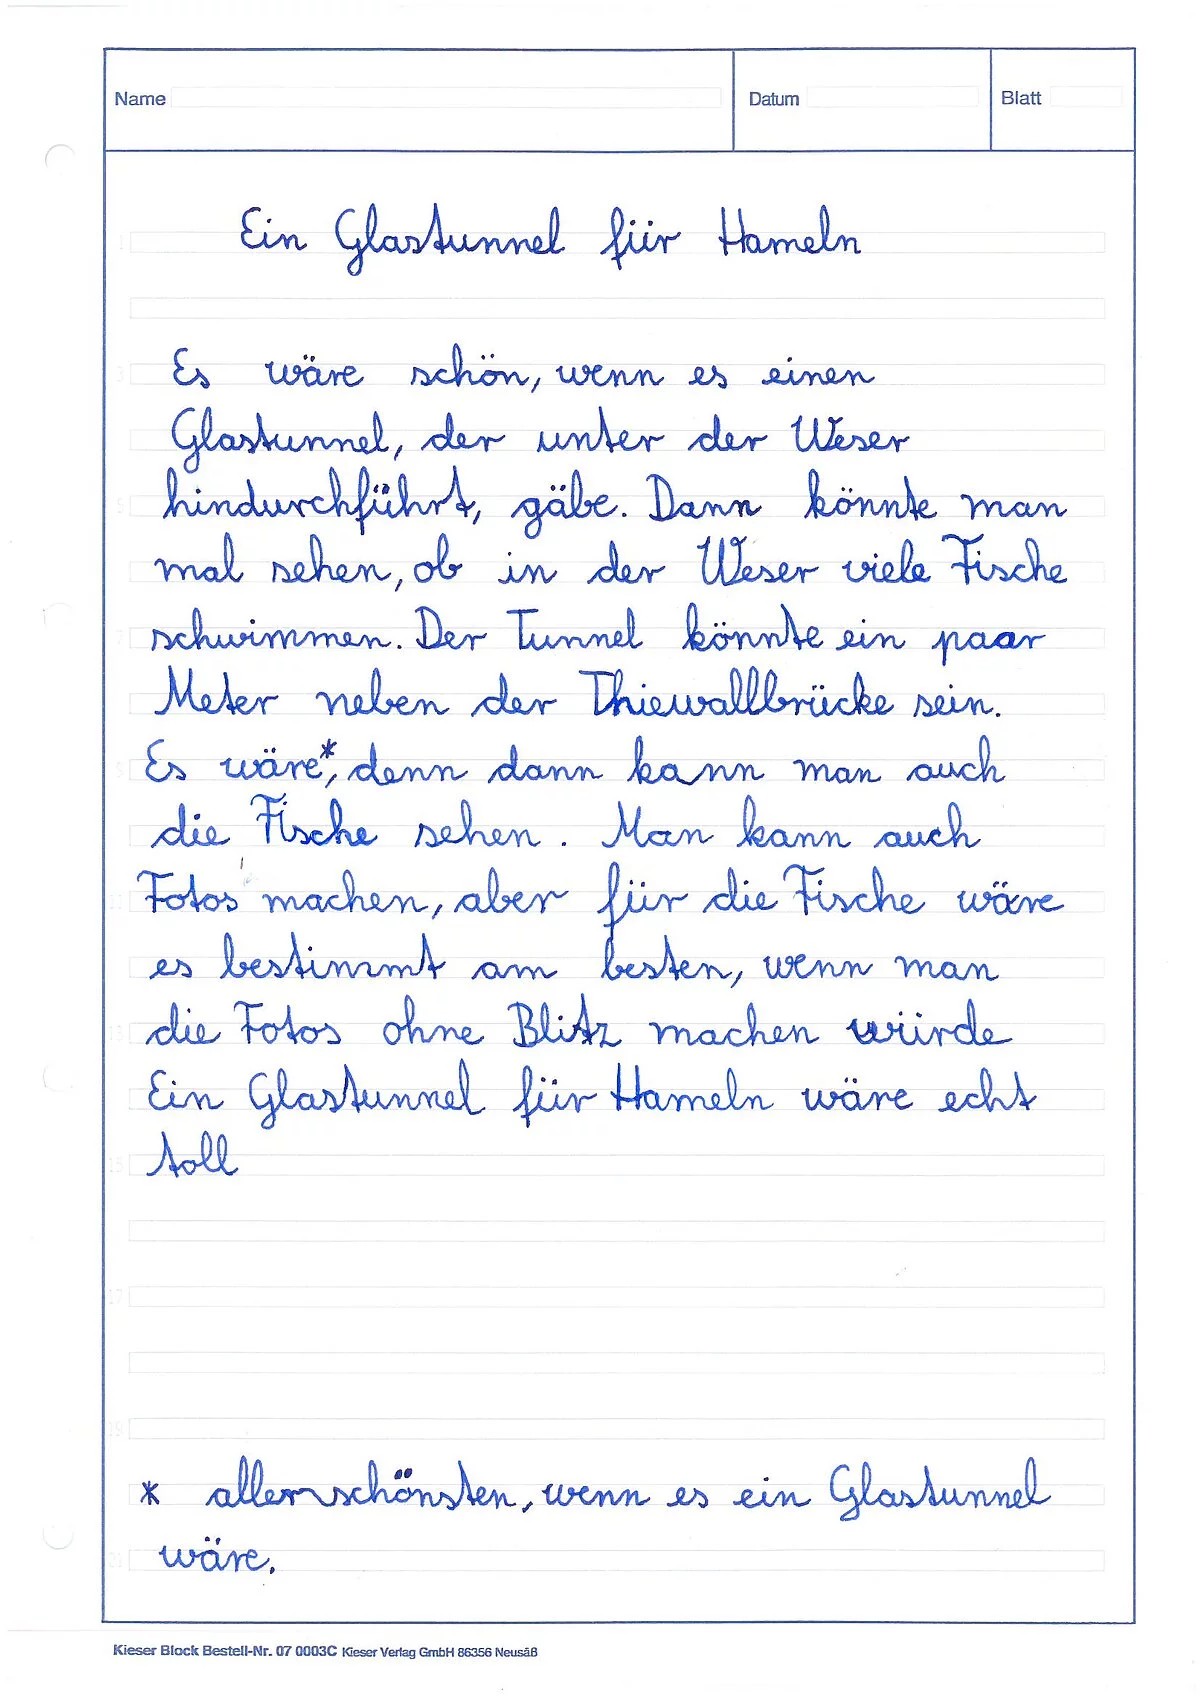 Name
Datum
Blatt
Ein Glastunnel für Hameln
Es wäre schön, wenn es einen
Glastunnel, der unter der Weser
hindurchführt, gäbe. Dann könnte man
mal sehen, ob in der Weser viele Fische
schwimmen. Der Tunnel könnte ein paar
Meter neben der Thiewallbrücke sein.
Es wäre*, denn dann kann man auch
die Fische sehen. Man kann auch
Fotos machen, aber für die Fische wäre
es bestimmt am besten, wenn man
die Fotos ohne Blitz machen würde
Ein Glastunnel für Hameln wäre echt
toll
* allerschönsten, wenn es ein Glastunnel
wäre.
Kieser Block Bestell-Nr. 07 0003C Kieser Verlag GmbH 86356 Neusäß